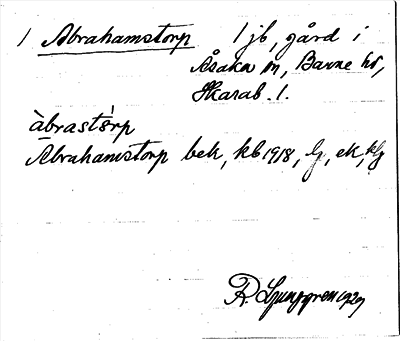 1 Abrahamstorp 1 jb, gård i
Åsaka sn, Barne hd,
Skarab. l.
àbrastårp
Abrahamstorp bek, kb 1918, lj, ek, klg
R. Ljunggren 1929